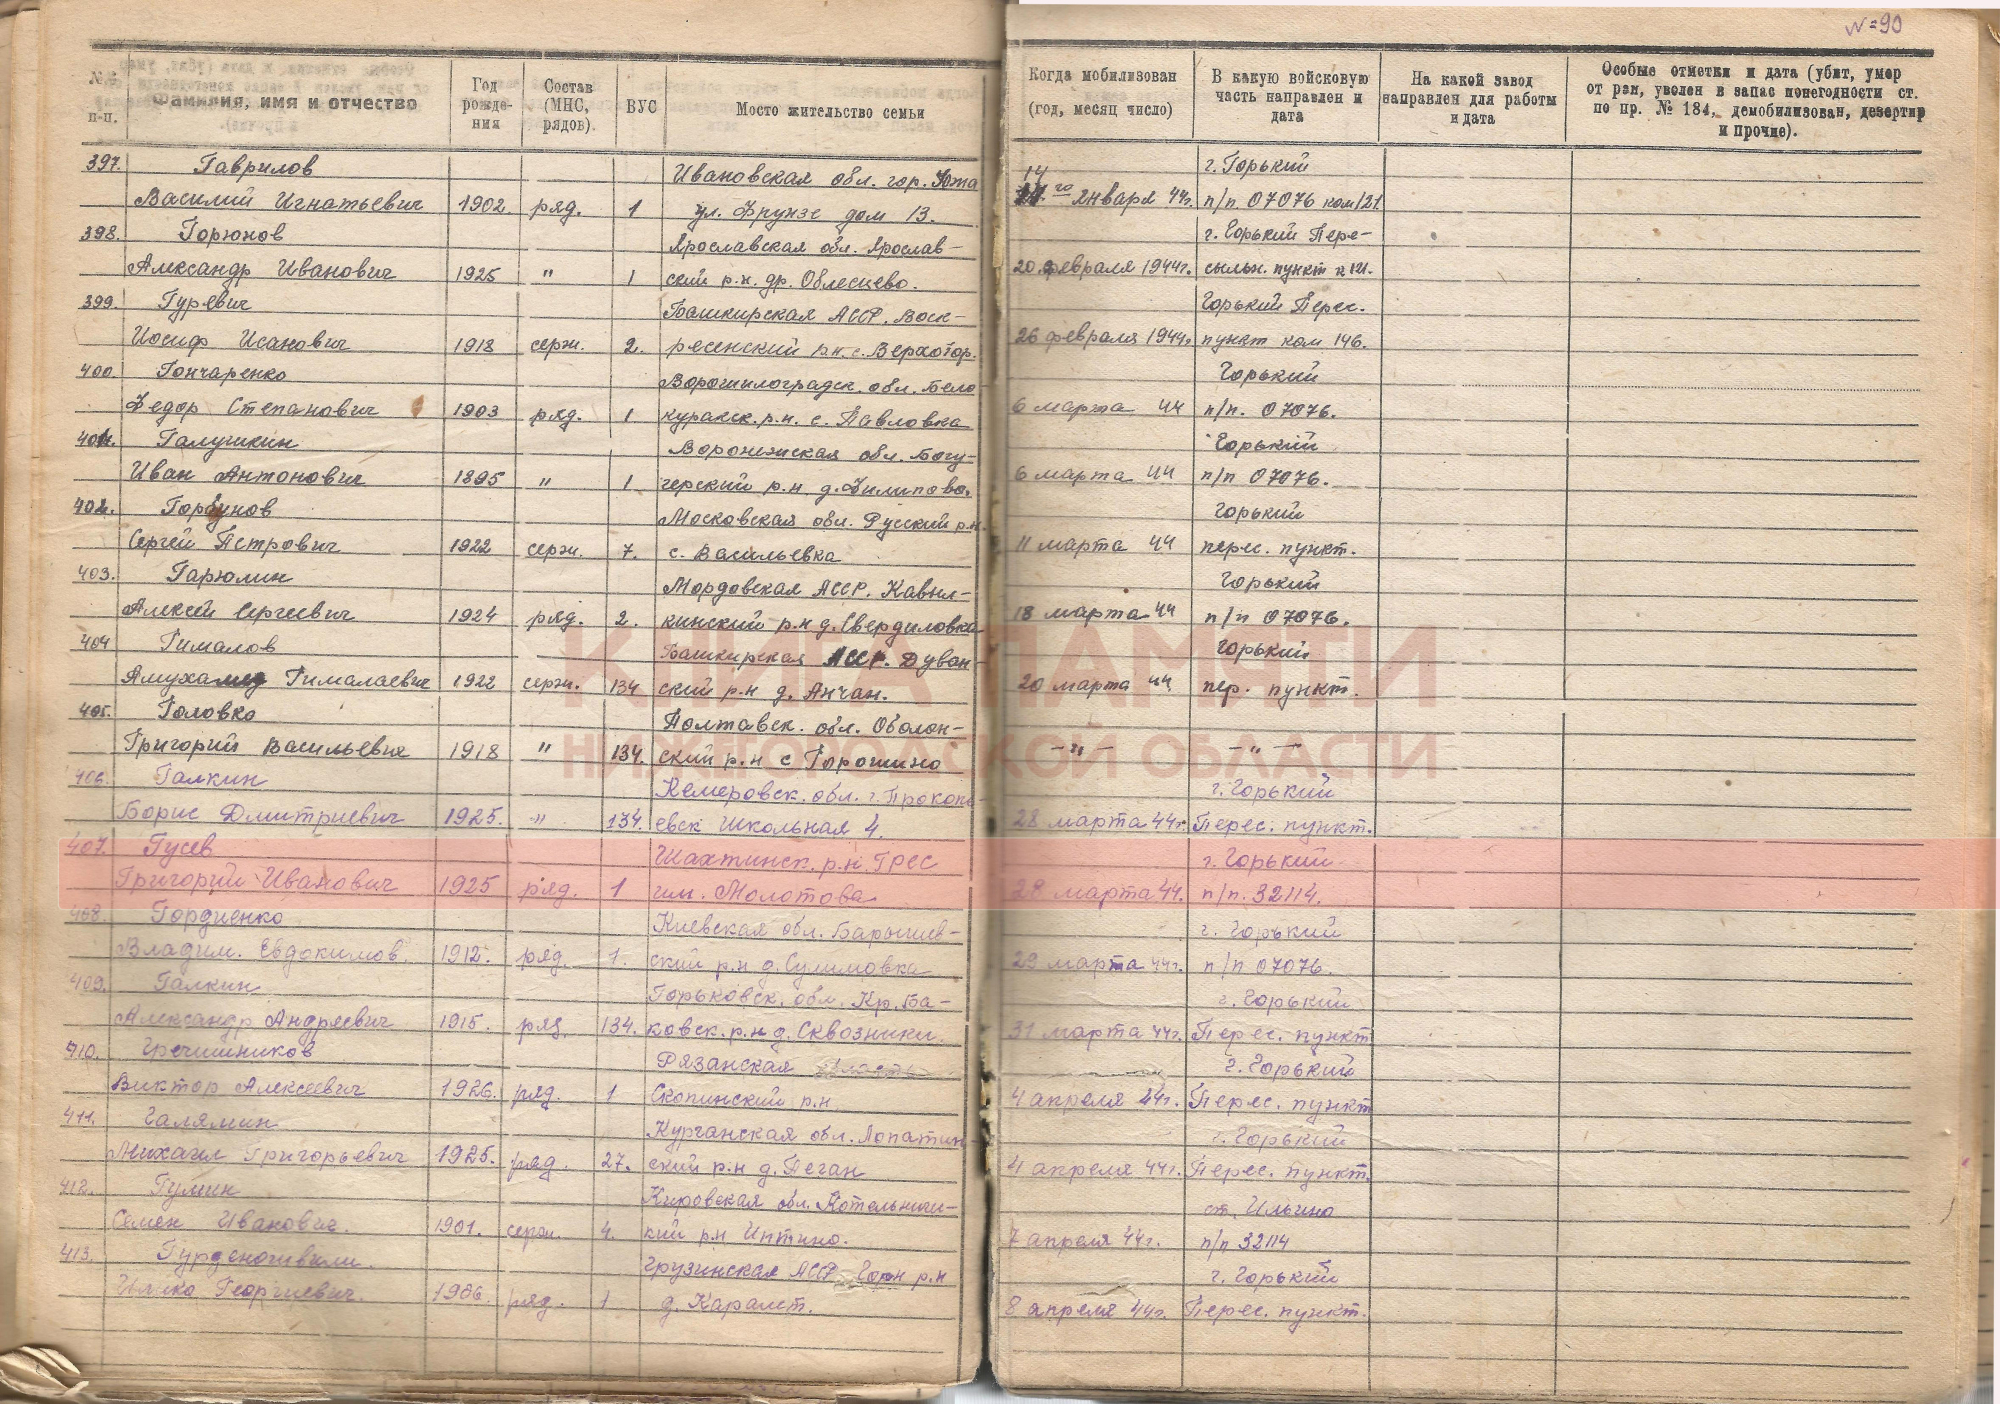 №=90
№№ п-п. Фамилия, имя и отчество Год рожде-ния Состав (МНС, рядов). ВУС Мосто жительство семьи Когда мобилизован (год, месяц число) В какую войсковую часть направлен и дата На какой завод направлен для работы и дата Особые отметки и дата (убит, умер от ран, уволен в запас понегодности ст. по пр. № 184, демобилизован, дезертир и прочие).
397. Гаврилов Ивановская обл. гор. Южа 14 г. Горький
Василий Игнатьевич 1902. ряд. 1 ул. Фрунзе дом 13. го января 44г. п/п. 07076 ком/121.
398. Горюнов Ярославская обл. Ярослав- г. Горький Пере-
Александр Иванович 1925 " 1 ский р.н. др. Облесцево. 20 февраля 1944г. сыльн. пункт к 121.
399. Гуревич Башкирская АССР. Воск- Горький Перес.
Иосиф Исанович 1918 серж. 2. ресенский р.н. с. Верхотор. 26 февраля 1944г. пункт ком 146.
400. Гончаренко Ворошилоградск. обл. Бело- Горький
Федор Степанович 1903 ряд. 1 куракск. р.н. с. Павловка 6 марта 44 п/п. 07076.
401. Галушкин Воронежская обл. Богу- Горький
Иван Антонович 1895 " 1 черский р.н д. Филипово. 6 марта 44 п/п 07076.
402. Горбунов Московская обл. Русский р.н. Горький
Сергей Петрович 1922 серж. 7. с. Васильевка 11 марта 44 перес. пункт.
403. Гарюлин Мордовская АССР. Кавыл- Горький
Алексей Сергеевич 1924 ряд. 2. кинский р.н д. Свердиловка 18 марта 44 п/п 07076.
404 Гималов Башкирская АССР. Дуван- Горький
Амухамед Гималаевич 1922 серж. 134 ский р.н д. Анчан. 20 марта 44 пер. пункт.
405. Головко Полтавск. обл. Оболон-
Григорий Васильевич 1918 " 134. ский р.н с Горошино – " – – " –
406. Галкин Кемеровск. обл. г. Прокопь- г. Горький
Борис Дмитриевич 1925. " 134. евск Школьная 4. 28 марта 44г. Перес. пункт.
407. Гусев Шахтинск. р.н. ГРЕС г. Горький
Григорий Иванович 1925 ряд. 1 им. Молотова 28 марта 44. п/п. 32114.
408. Гордиенко Киевская обл. Барышев- г. Горький
Владим. Евдокимов. 1912. ряд. 1. ский р.н д. Сулимовка 29 марта 44г. п/п 07076.
409. Галкин Горьковск. обл. Кр. Ба- г. Горький
Александр Андреевич 1915. ряд. 134. ковск. р.н д. Сквозники. 31 марта 44г. Перес. пункт
410. Гречишников Рязанская область г. Горький
Виктор Алексеевич 1926. ряд. 1 Скопинский р.н 4 апреля 44г. Перес. пункт
411. Галямин Курганская обл. Лопатин- г. Горький
Михаил Григорьевич 1925. ряд. 27. ский р.н д. Пеган 4 апреля 44г. Перес. пункт.
412. Гулин Кировская обл. Котельнич- ст. Ильино
Семен Иванович. 1901. серж. 4. кий р.н Интино. 7 апреля 44г. п/п 32114
413. Грузинская АССР Гори р.н г. Горький
Илико Георгиевич. 1906. ряд. 1 д. Каралет. 8 апреля 44г. Перес. пункт.
КНИГА ПАМЯТИ
НИЖЕГОРОДСКОЙ ОБЛАСТИ